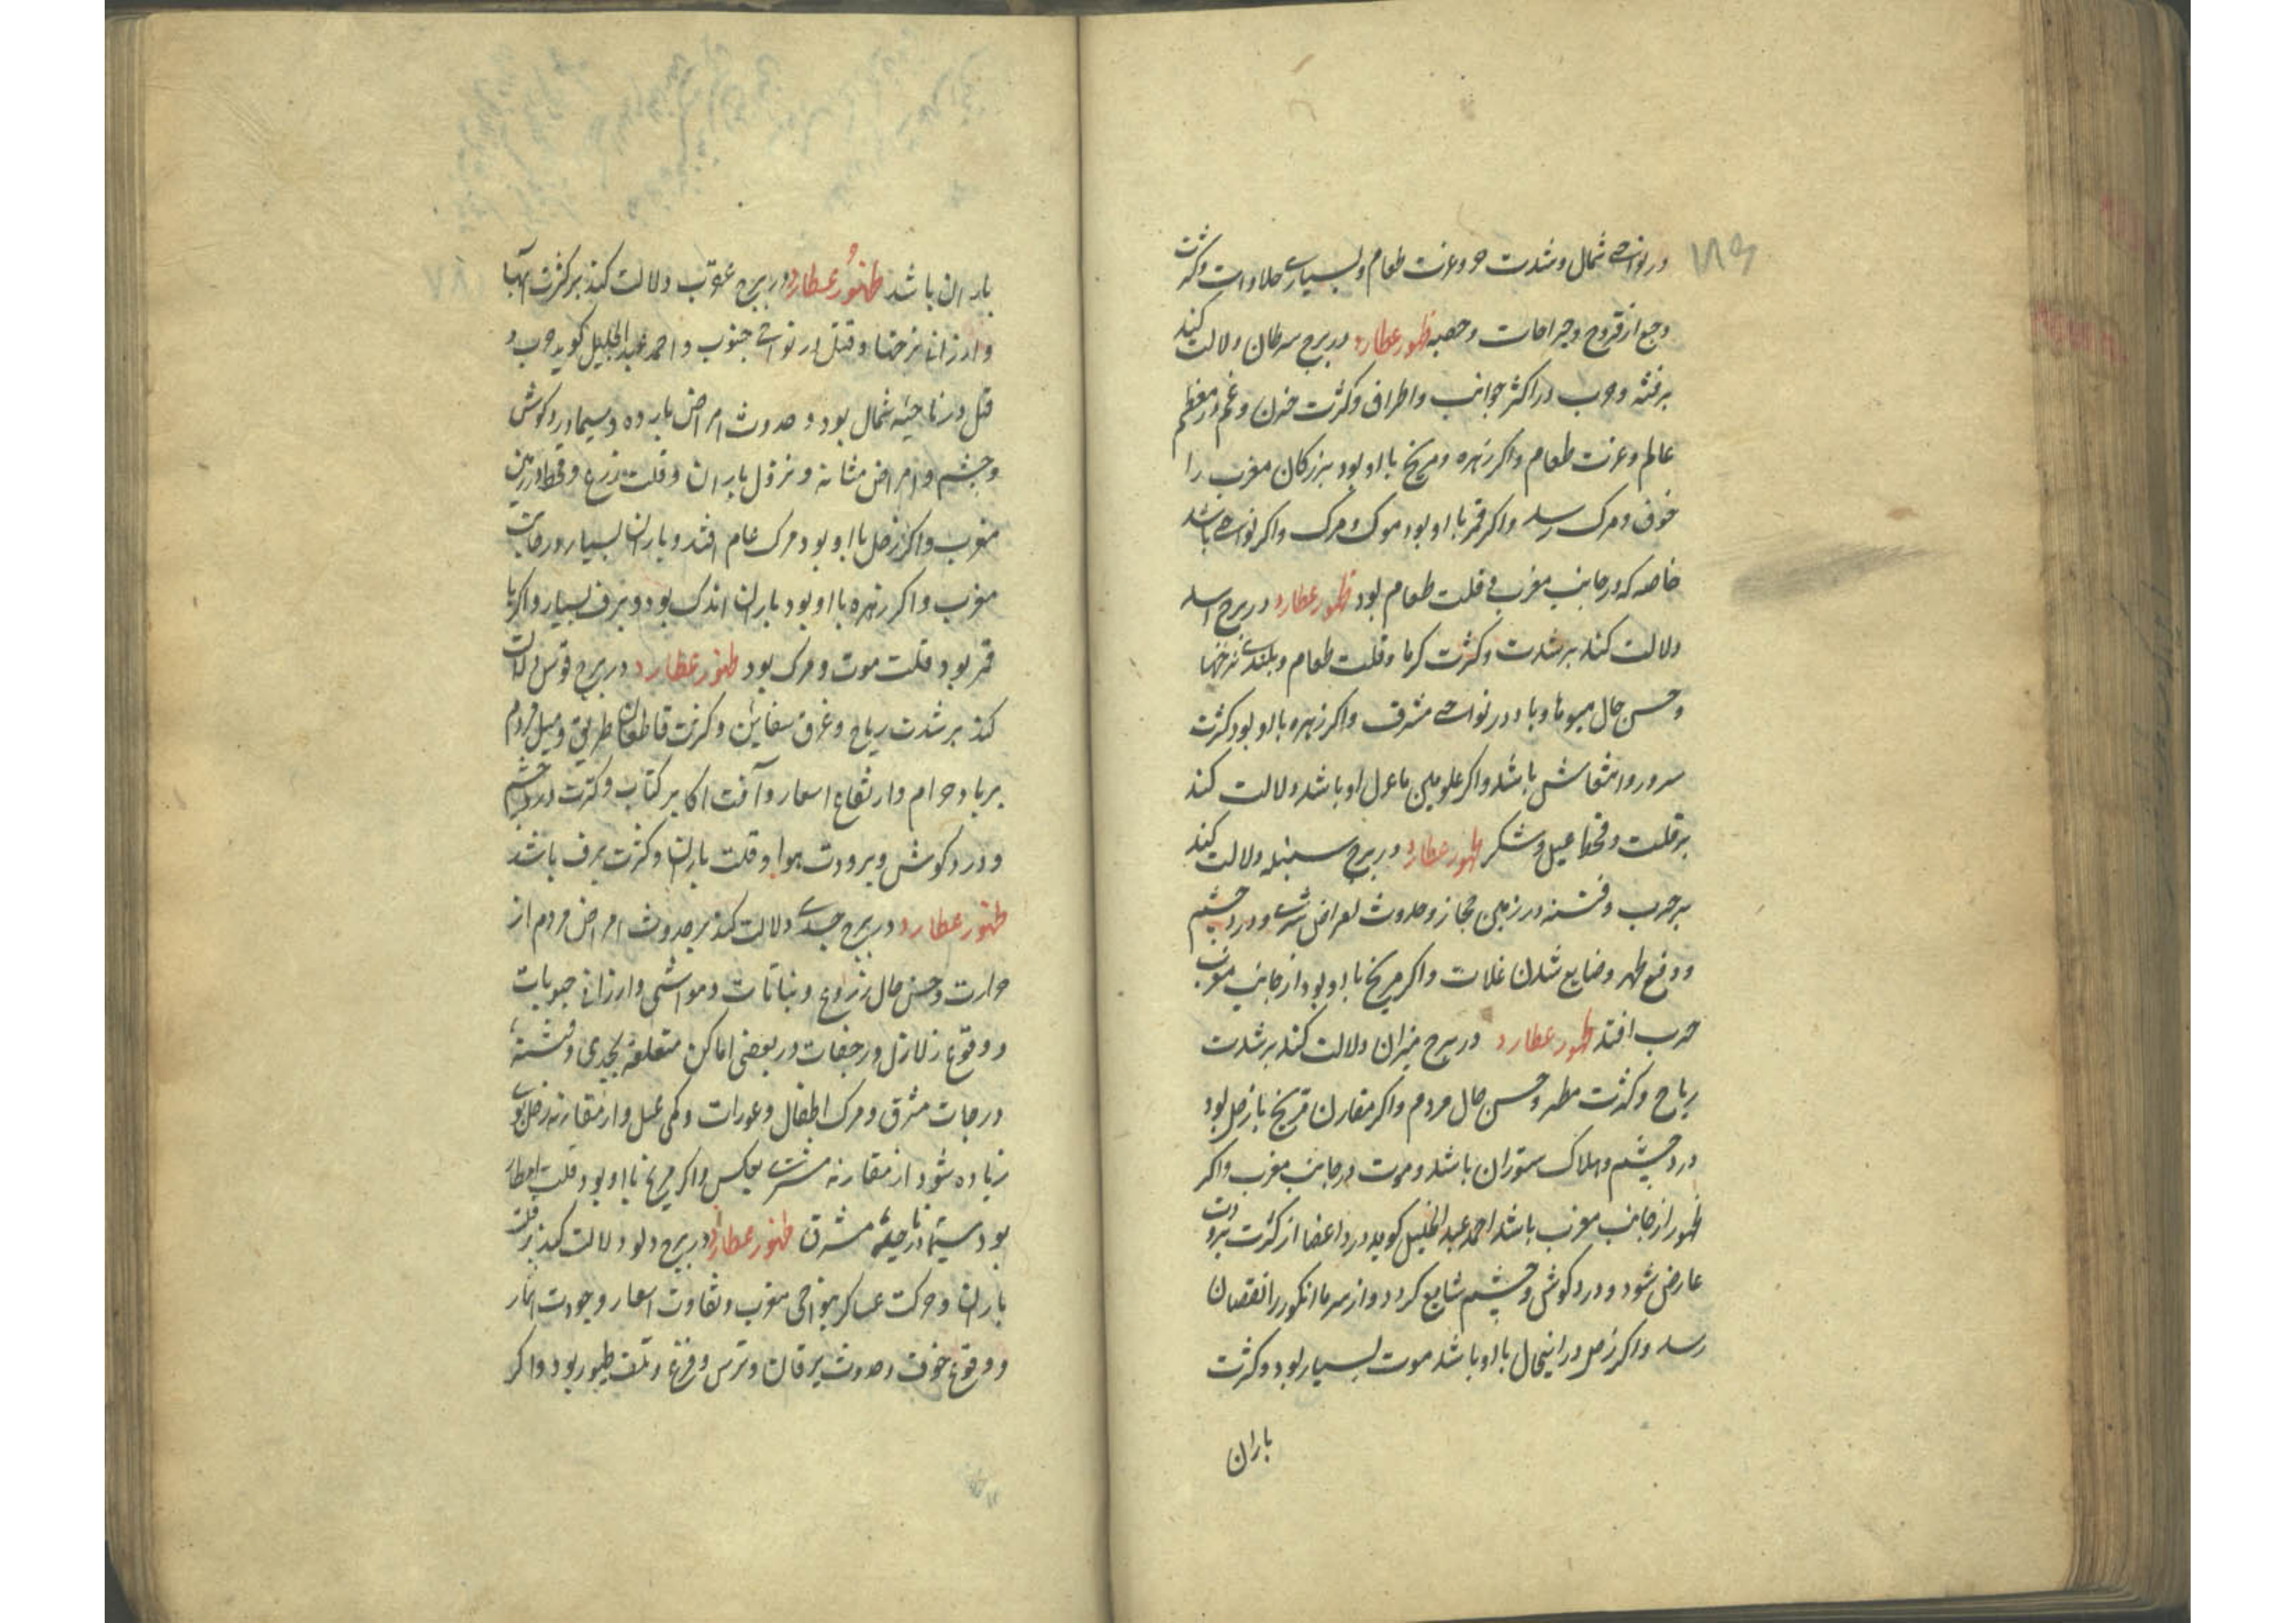 در نواحی شمال و شدت حر و عزت طعام و بسیاری حلاوات و کثرت
وجع از قروح و جراحات و حصبه ظهور عطارد در برج سرطان دلالت کند
بر فتنه و حرب در اکثر جوانب و اطراف و کثرت حزن و غم در معظم
عالم و عزت طعام و اکر زهره و مریخ با او بود بزرکان مغرب را
خوف و مرک رسد و اکر قمر با او بود موک و مرک و اکر نواحی باشد
خاصه که در جانب مغرب و قلت طعام بود ظهور عطارد در برج اسد
دلالت کند بر شدت و کثرت کرما و قلت طعام و بلندی نرخها
و حسن حال میوها و با در نواحی مشرق و اکر زهره با او بود کثرت
سرور و انتعاش باشد و اکر علویین با او باشد دلالت کند
بر قلت و قحط عسل و شکر ظهور عطارد در برج سنبله دلالت کند
بر حرب و فتنه در زمین حجاز و حدوث امراض و درد چشم
و وقع ظهر و ضایع شدن غلات و اکر مریخ با او بود از جانب مغرب
حرب افتد ظهور عطارد در برج میزان دلالت کند بر شدت
ریاح و کثرت مطر و حسن حال مردم و اکر مقارن مریخ یا زحل بود
درد چشم و هلاک ستوران باشد و موت در جانب مغرب و اکر
ظهور از جانب مغرب باشد احمد عبدالجلیل کوید درد اعضا از کثرت برودت
عارض شود و درد کوش و چشم شایع کردد و از سرما انکور را نقصان
رسد و اکر زحل در اینحال با او باشد موت بسیار بود و کثرت
باران
باران باشد ظهور عطارد در برج عقرب دلالت کند بر کثرت آبها
و ارزانی نرخها و قتل در نواحی جنوب و احمد عبدالجلیل کوید حرب و
قتل در ناحیه شمال بود و حدوث امراض بارده و سیما درد کوش
و چشم و امراض مثانه و نزول باران و قلت زرع و قحط در زمین
مغرب و اکر زحل با او بود مرک عام افتد و باران بسیار در جانب
مغرب و اکر زهره با او بود باران اندک بود و برف بسیار و اکر با
قمر بود قلت موت و مرک بود ظهور عطارد در برج قوس دلالت
کند بر شدت ریاح و غرق سفاین و کثرت قاطعان طریق و میل مردم
بر باد حرام و ارتفاع اسعار و آفت اکابر کتاب و کثرت درد چشم
و درد کوش و برودت هوا و قلت باران و کثرت برف باشد
ظهور عطارد در برج جدی دلالت کند بر حدوث امراض مردم از
حرارت و حسن حال زروع و نباتات و مواشی و ارزانی حبوبات
و وقوع زلازل و رجفات در بعضی اماکن متعلقه بجدی و فتنه
در جانب مشرق و مرک اطفال و عورات و کمی عسل و از مقارنه زحل بدی
زیاده شود از مقارنه مشتری بعکس و اکر مریخ با او بود قلت امطار
بود سیما در ناحیه مشرق ظهور عطارد در برج دلو دلالت کند بر قلت
باران و حرکت عساکر بنواحی مغرب و تفاوت اسعار و جودت اثمار
و وقوع خوف و حدوث یرقان و ترس و فزع و تلف طیور بود و اکر